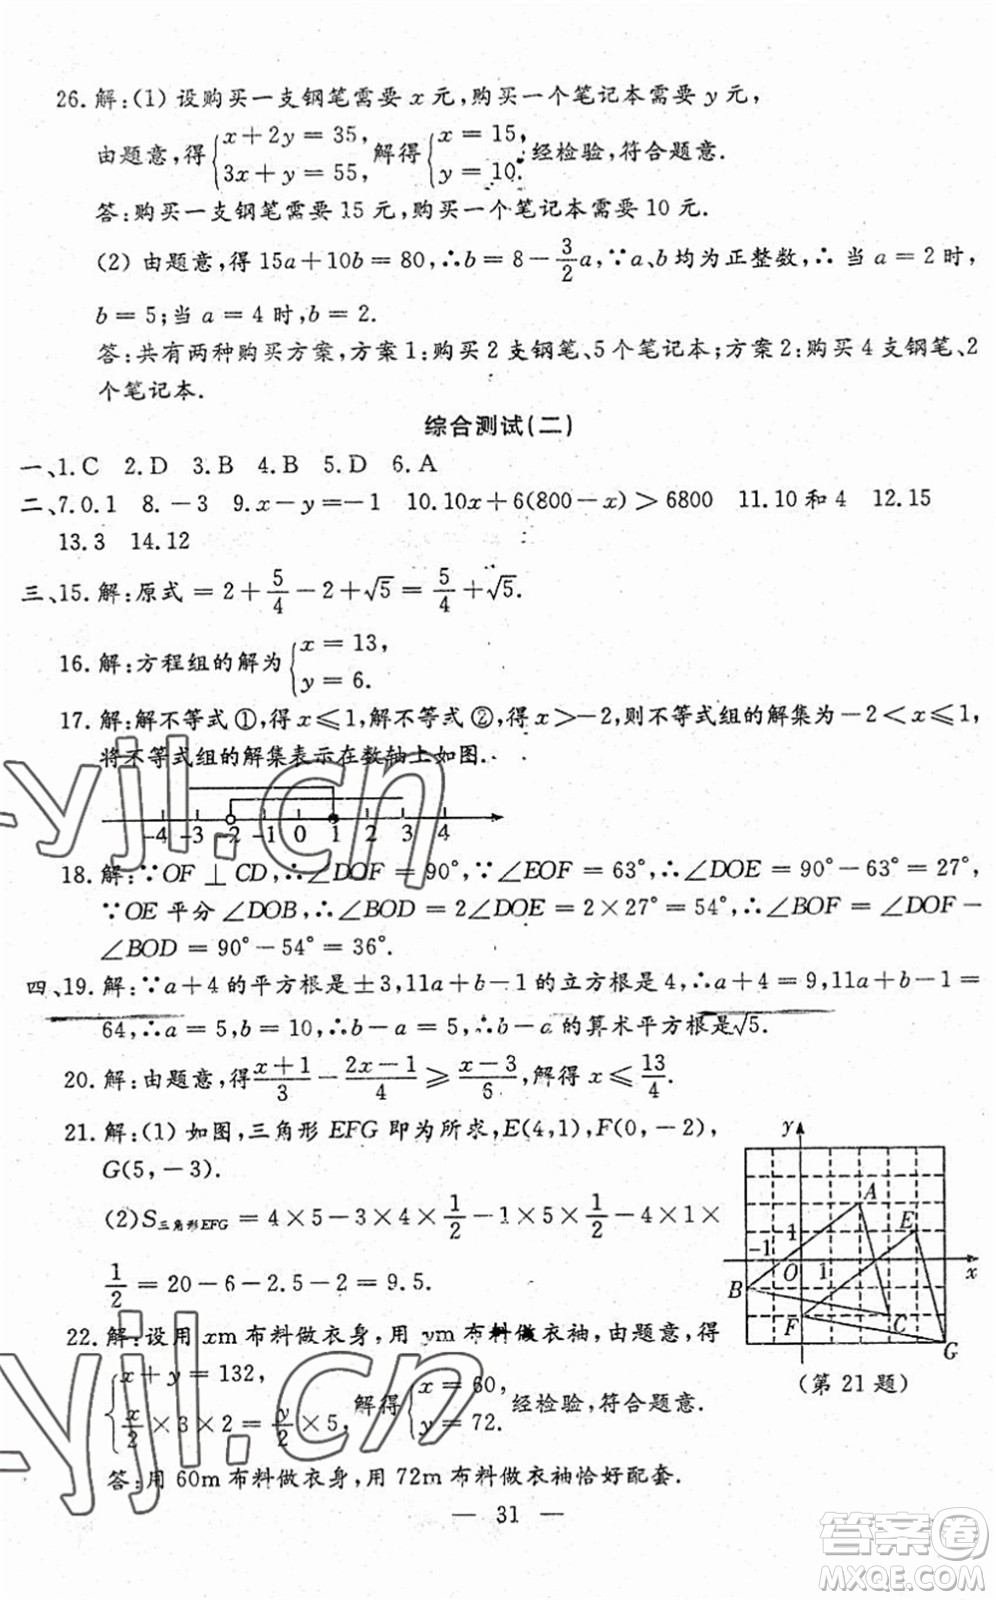 26.解:(1)设购买一支钢笔需要 x 元,购买一个笔记本需要 y 元,
由题意,得{x+2y=35, 3x+y=55, 解得{x=15, y=10. 经检验,符合题意.
答:购买一支钢笔需要 15 元,购买一个笔记本需要 10 元.
(2) 由题意,得 15a+10b=80,∴b=8-3/2a,∵a、b 均为正整数,∴ 当 a=2 时,
b=5;当 a=4 时,b=2.
答:共有两种购买方案,方案 1:购买 2 支钢笔、5 个笔记本;方案 2:购买 4 支钢笔、2
个笔记本.
综合测试(二)
一、1.C 2.D 3.B 4.B 5.D 6.A
二、7.0.1 8.-3 9.x-y=-1 10.10x+6(800-x)>6800 11.10 和 4 12.15
13.3 14.12
三、15.解:原式=2+5/4-2+√5=5/4+√5.
16.解:方程组的解为{x=13, y=6.
17.解:解不等式①,得 x≤1,解不等式②,得 x>-2,则不等式组的解集为-2<x≤1,
将不等式组的解集表示在数轴上如图.
-4 -3 -2 -1 0 1 2 3 4
18.解:∵OF⊥CD,∴∠DOF=90°,∵∠EOF=63°,∴∠DOE=90°-63°=27°,
∵OE 平分∠DOB,∴∠BOD=2∠DOE=2×27°=54°,∴∠BOF=∠DOF-
∠BOD=90°-54°=36°.
四、19.解:∵a+4 的平方根是±3,11a+b-1 的立方根是 4,∴a+4=9,11a+b-1=
64,∴a=5,b=10,∴b-a=5,∴b-a 的算术平方根是√5.
20.解:由题意,得(x+1)/3-(2x-1)/4≥(x-3)/6,解得 x≤13/4.
21.解:(1) 如图,三角形 EFG 即为所求,E(4,1),F(0,-2),
G(5,-3).
(2)S三角形EFG=4×5-3×4×1/2-1×5×1/2-4×1×
1/2=20-6-2.5-2=9.5.
y
A
E
-1 1
B O 1 x
F C
G
(第 21 题)
22.解:设用 xm 布料做衣身,用 ym 布料做衣袖,由题意,得
{x+y=132, x/2×3×2=y/2×5, 解得{x=60, y=72. 经检验,符合题意.
答:用 60m 布料做衣身,用 72m 布料做衣袖恰好配套.
— 31 —
yjl.cn
yjl.cn
答案圈
MXQE.COM